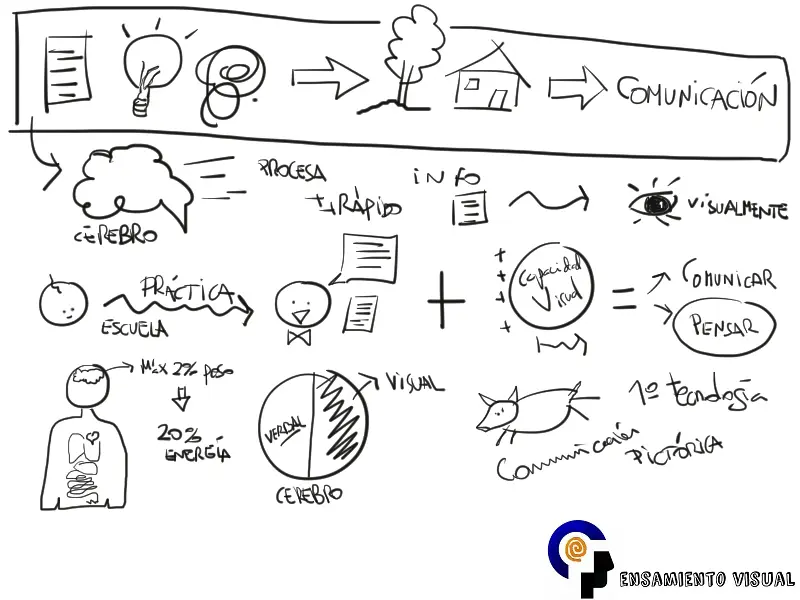 COMUNICACIÓN
PROCESA
++RÁPIDO
iNFO
ViSUALMENTE
CEREBRO
PRÁCTICA
ESCUELA
Capacidad
Visual
COMUNICAR
PENSAR
MÁX 2% peso
20%
ENERGÍA
VERBAL
VISUAL
CEREBRO
1º tecnología
Comunicación
PICTÓRICA
ENSAMIENTO VISUAL